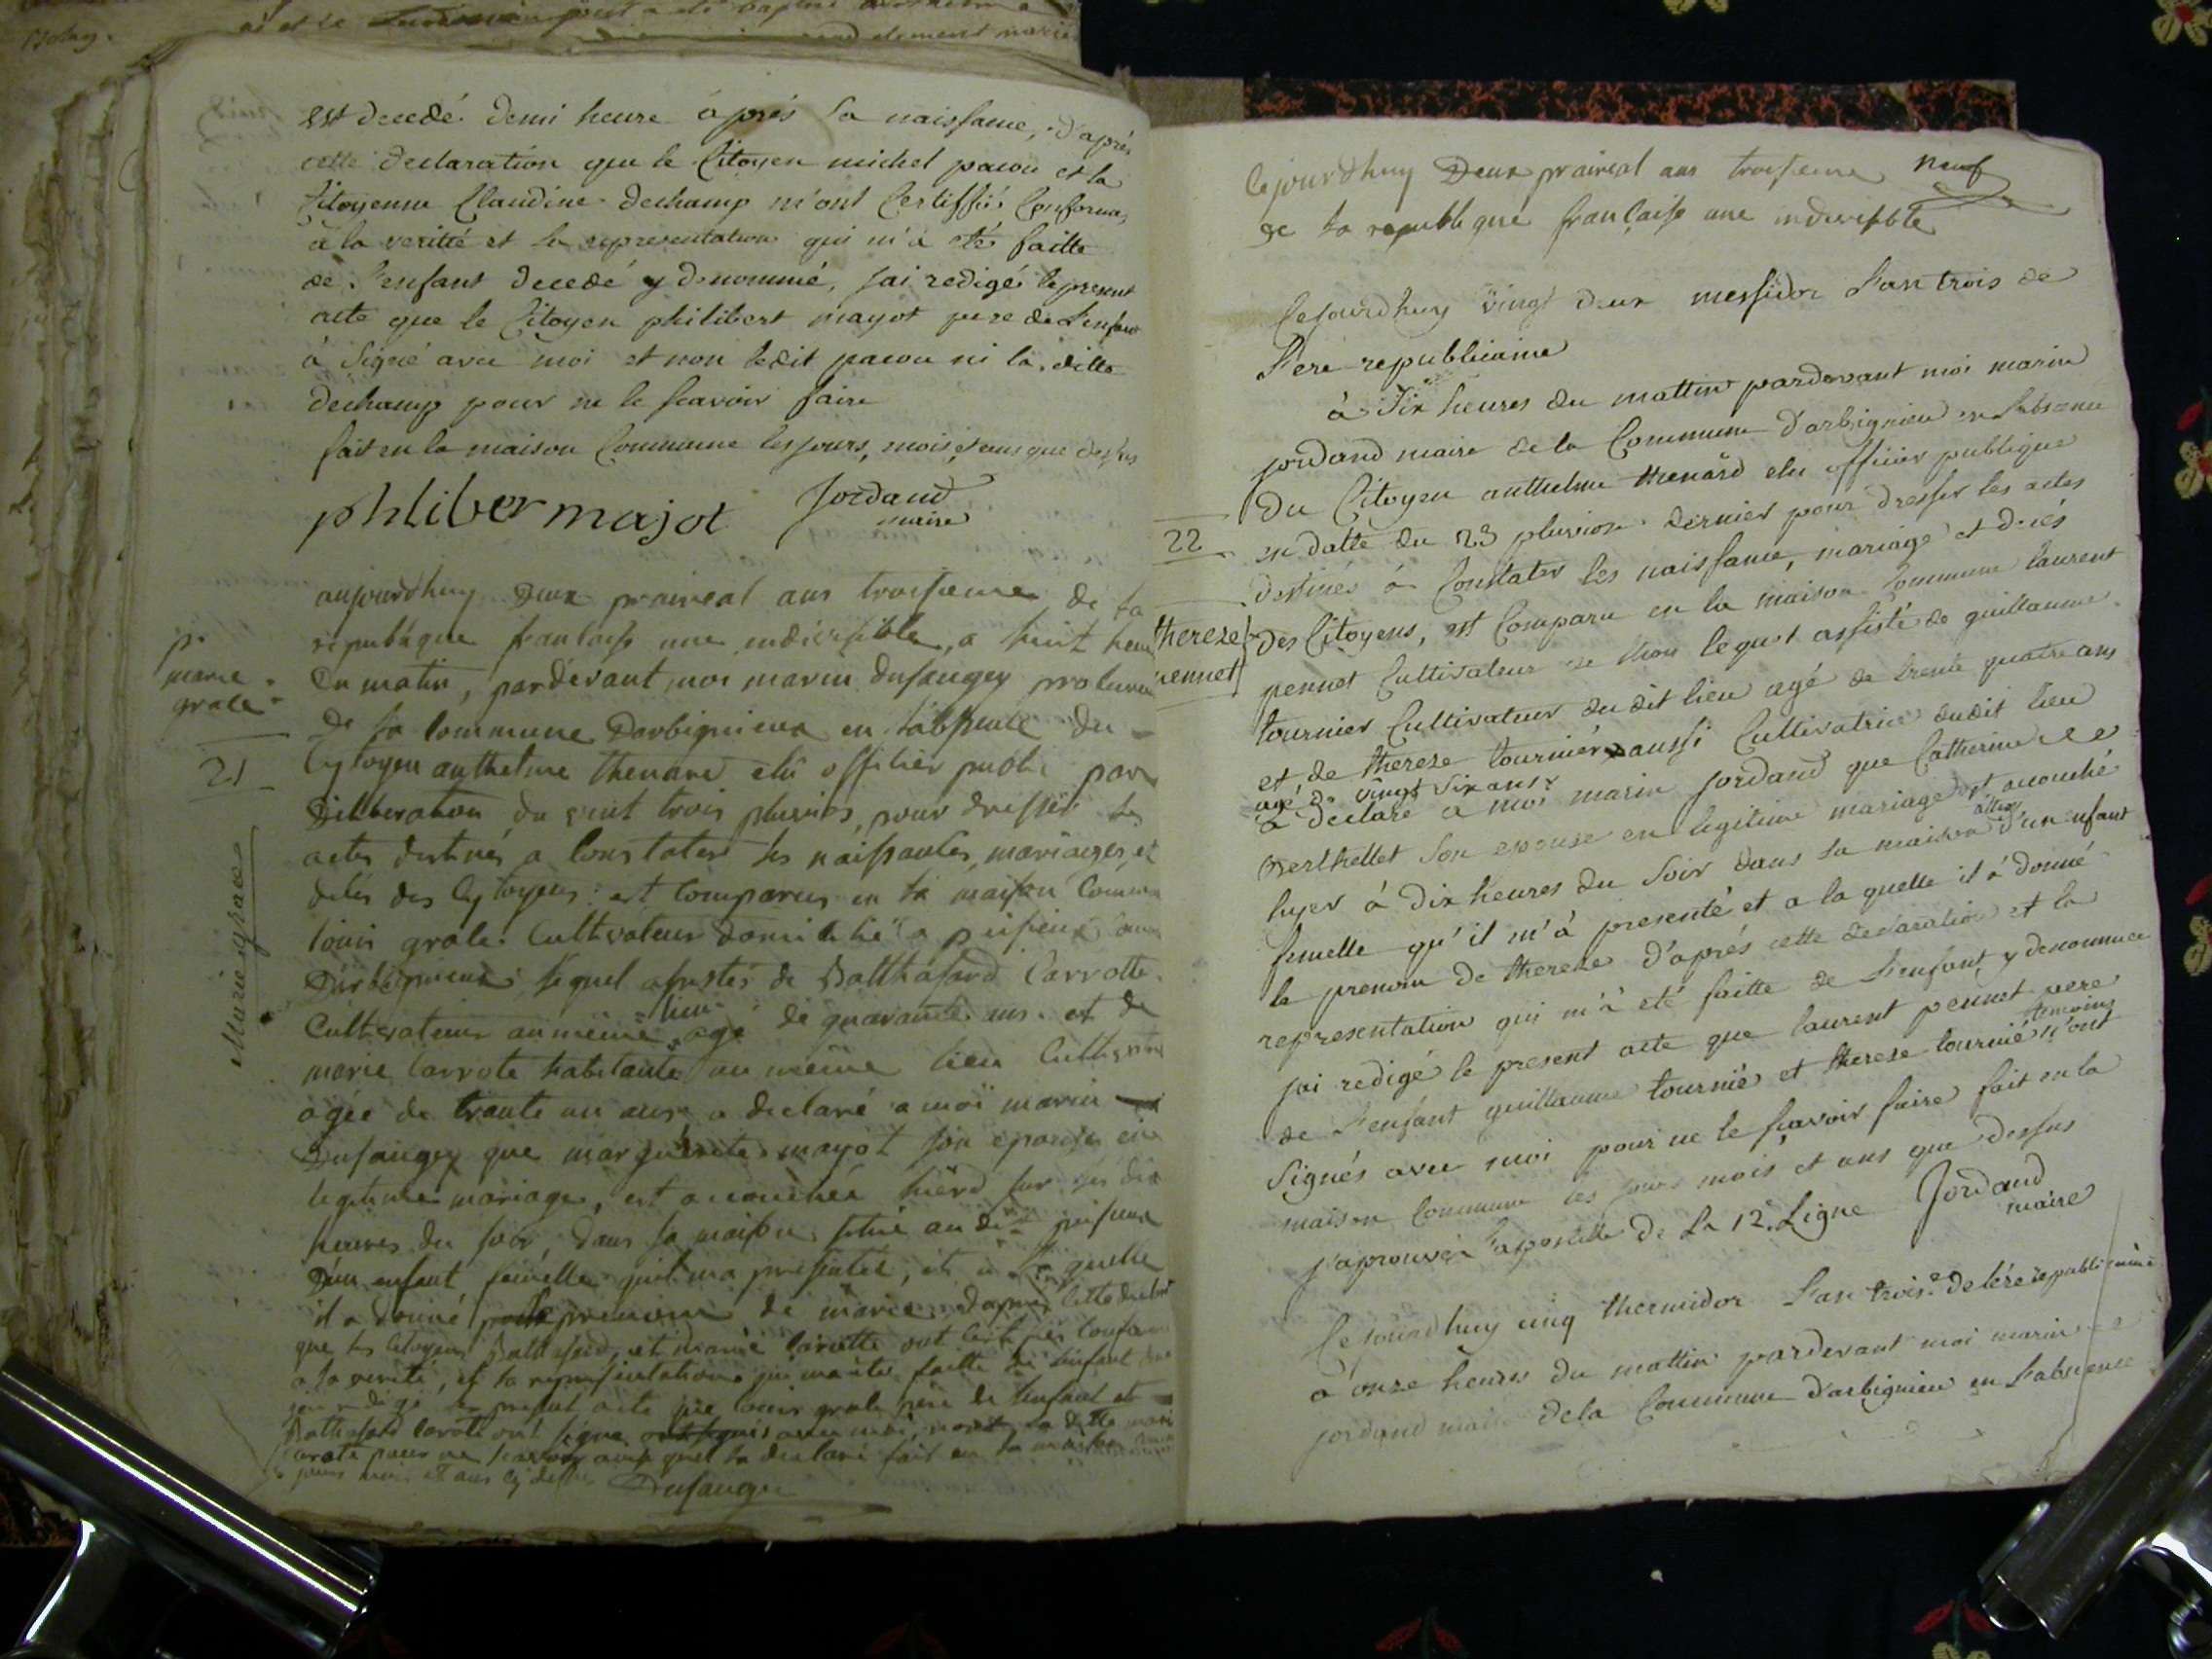 est decedé demi heure áprés sa naissance, d'aprés
cette declaration que le Citoyen michel pacou et la
Citoyenne Claudine dechamp m'ont Certiffiés Conforme
à la verité et la representation qui m'a eté faitte
de l'enfant decedé y denommé, jai redigé le present
acte que le Citoyen philibert mayot pere de l'enfant
à signé avec moi et non ledit pacou ni la ditte
dechamp pour ne le scavoir faire
fait en la maison Commune les jours, mois et ans que dessus
phliber majot Jordand
maire
aujourdhuy deux praireal ans troisieme de la
republique francaise une indivisible, a huit heure
du matin, pardevant moi marin dufaugey procureur
de la commune darbignieux en l'absence du
Cytoyen anthelme thenard elu officier public par
deliberation du vint trois pluvios, pour dresser les
actes destinés a constater les naissantes, mariages, et
deces des Cytoyens : est comparus en la maison commune
louis grale Cultivateur domicilié a peisieux
D'arbignieux lequel assistes de Balthasard Carrotte
Cultivateur au meme lieu agé de quarante ans et de
marie Carrote habitante au meme lieu Cultivatrice
agée de trante un ans a declaré a moi marin
Dufaugey que marguerite mayot son epouse en
legitime mariage, est acouchée hierd sur les dix
heures du soir, dans sa maison situé au dit peisieux
D'un enfant femelle quil ma presentée, et a la quelle
il a donné le prenom de marie daprés cette declaration
que les Citoyens Balthasard et marie Carotte ont certifiés conforme
a la verité, et la representation qui ma eté faitte de l'enfant
jai redigé le present acte que louis grale père de l'enfant et
Balthasard Carote ont signé avec moi, non la ditte marie
Carote pour ne scavoir fait en la maison
les jours mois et ans cy dessus Dufaugey
p.
marie
grale
21
Marie grace
cejourdhuy Deux praireal ans troisieme neuf
de la republique francaise une indivisible
Cejourdhuy vingt deux messidor l'an trois de
l'ere republicaine
à six heures du mattin pardevant moi marin
jordand maire de la Commune d'arbignieu en l'absence
du Citoyen anthelme thenard elu officier publique
en datte du 23 pluviose dernier pour dresser les actes
destinés á Constater les naissance, mariage et decés
des Citoyens, est Comparu en la maison Commune laurent
pennet Cultivateur de thou lequel assisté de guillaume
tournier Cultivateur du dit lieu agé de trente quatre ans
et de therese tournier aussi Cultivatrice dudit lieu
agé de vingt six ans
a declaré a moi marin jordand que Catherine
Berthellet son epouse en legitime mariage est acouché
hyer á dix heures du soir dans sa maison d'un enfant
femelle qu'il m'à presenté et a la quelle il á donné
le prenom de therese d'aprés cette declaration et la
representation qui m'à eté faitte de l'enfant y denommée
jai redigé le present acte que laurent pennet pere
de l'enfant guillaume tournié et therese tournié temoins n'ont
Signés avec moi pour ne le sçavoir faire fait en la
maison Commune les jours mois et ans que dessus
j'aprouvé l'apostille de la 12e Ligne Jordand
maire
22
therese
pennet
Cejourdhuy cinq thermidor l'an trois.e de l'ére republicaine
á onze heures du mattin pardevant moi marin
jordand maire dela Commune d'arbignieu en l'absence